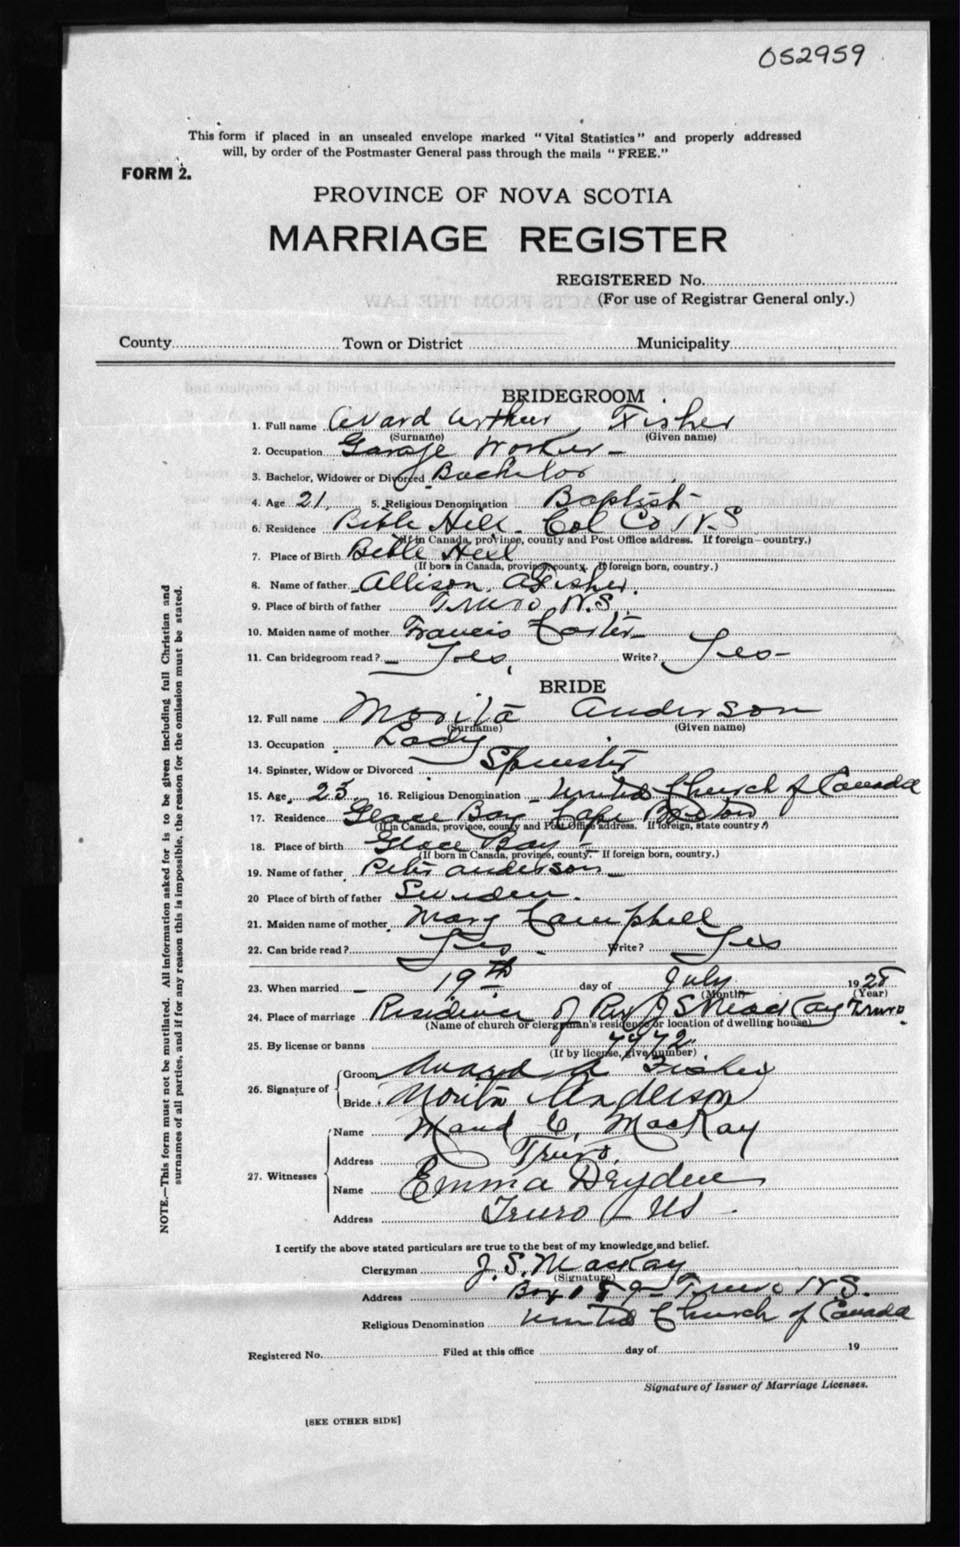 052959
This form if placed in an unsealed envelope marked "Vital Statistics" and properly addressed
will, by order of the Postmaster General pass through the mails "FREE."
FORM 2.
PROVINCE OF NOVA SCOTIA
MARRIAGE REGISTER
REGISTERED No.
(For use of Registrar General only.)
County Town or District Municipality
BRIDEGROOM
1. Full name Avard Arthur Fisher
(Surname) (Given name)
2. Occupation Garage Worker
3. Bachelor, Widower or Divorced Bachelor
4. Age 21 5. Religious Denomination Baptist
6. Residence Bible Hill Col Co N.S
(If in Canada, province, county and Post Office address. If foreign-country.)
7. Place of Birth Bible Hill
(If born in Canada, province, county. If foreign born, country.)
8. Name of father Allison A Fisher.
9. Place of birth of father Truro N.S.
10. Maiden name of mother Francis
11. Can bridegroom read? Yes, Write? Yes
BRIDE
12. Full name Morita Anderson
(Surname) (Given name)
13. Occupation Lady
14. Spinster, Widow or Divorced Spinster
15. Age 23 16. Religious Denomination United Church of Canada
17. Residence Glace Bay Cape Breton
(If in Canada, province, county and Post Office address. If foreign, state country)
18. Place of birth Glace Bay
(If born in Canada, province, county. If foreign born, country.)
19. Name of father Peter Anderson
20 Place of birth of father Sweden.
21. Maiden name of mother Mary Campbell
22. Can bride read? Yes Write? Yes
23. When married 19th day of July 1928
(Month) (Year)
24. Place of marriage Residence of Rev J S MacKay Truro.
(Name of church or clergyman's residence or location of dwelling house)
25. By license or banns 7972
(If by license, give number)
26. Signature of Groom Avard A Fisher
Bride Morita Anderson
27. Witnesses Name Maud C. MacKay
Address Truro
Name Emma Dryden
Address Truro NS
I certify the above stated particulars are true to the best of my knowledge and belief.
Clergyman J. S. MacKay
(Signature)
Address Box Truro N.S.
Religious Denomination United Church of Canada
Registered No. Filed at this office day of 19
Signature of Issuer of Marriage Licenses.
[SEE OTHER SIDE]
NOTE.—This form must not be mutilated. All information asked for is to be given including full Christian and
surnames of all parties, and if for any reason this is impossible, the reason for the omission must be stated.